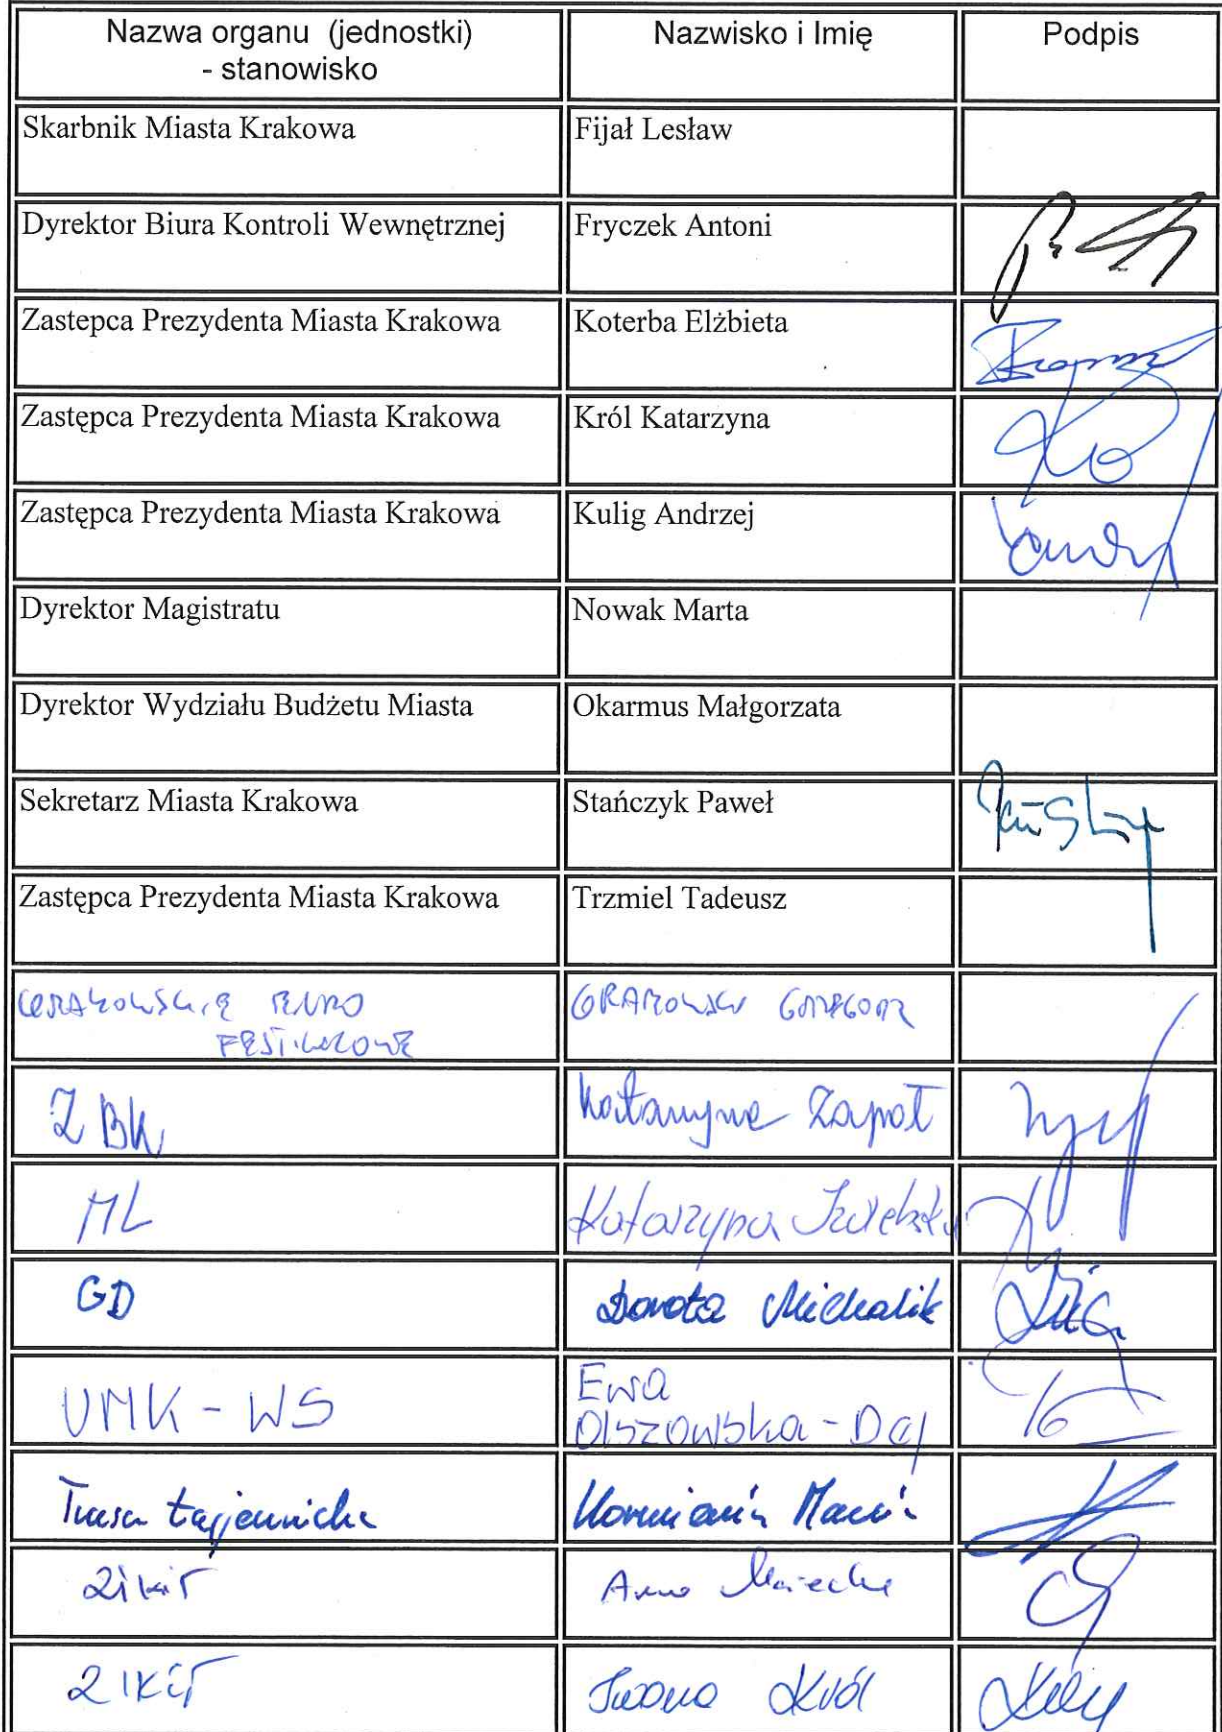 Nazwa organu (jednostki)
- stanowisko
Nazwisko i Imię
Podpis
Skarbnik Miasta Krakowa
Fijał Lesław
Dyrektor Biura Kontroli Wewnętrznej
Fryczek Antoni
Zastepca Prezydenta Miasta Krakowa
Koterba Elżbieta
Zastępca Prezydenta Miasta Krakowa
Król Katarzyna
Zastępca Prezydenta Miasta Krakowa
Kulig Andrzej
Dyrektor Magistratu
Nowak Marta
Dyrektor Wydziału Budżetu Miasta
Okarmus Małgorzata
Sekretarz Miasta Krakowa
Stańczyk Paweł
Zastępca Prezydenta Miasta Krakowa
Trzmiel Tadeusz
KRAKOWSKIE BIURO
FESTIWALOWE
GRZEGORZ
ZBK
Katarzyna Zapał
ML
Katarzyna
GD
Dorota Michalik
UMK - WS
Ewa
Olszowska - Dej
Marcin
ZIKiT
Anna
ZIKiT
Iwona Król